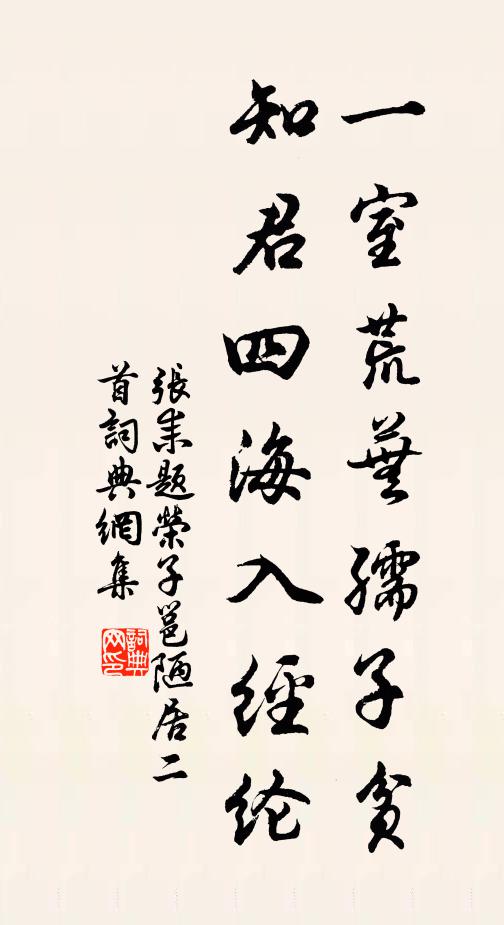 一室荒蕪孺子貧
知君四海入經纶
張耒題榮子邕陋居二
首詞典網集
詞典
网印